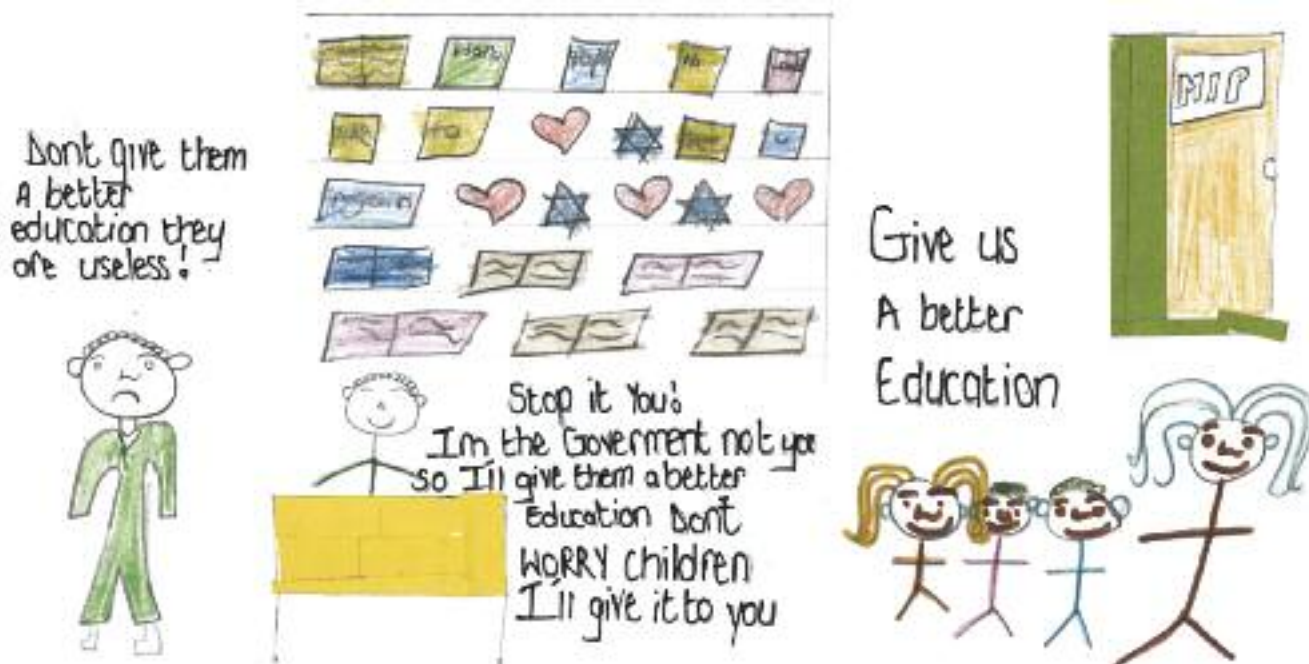 Dont give them
A better
education they
are useless!
Stop it You!
Im the Goverment not you
so I'll give them a better
Education Don't
WORRY children
I'll give it to you
Give us
A better
Education
MIP